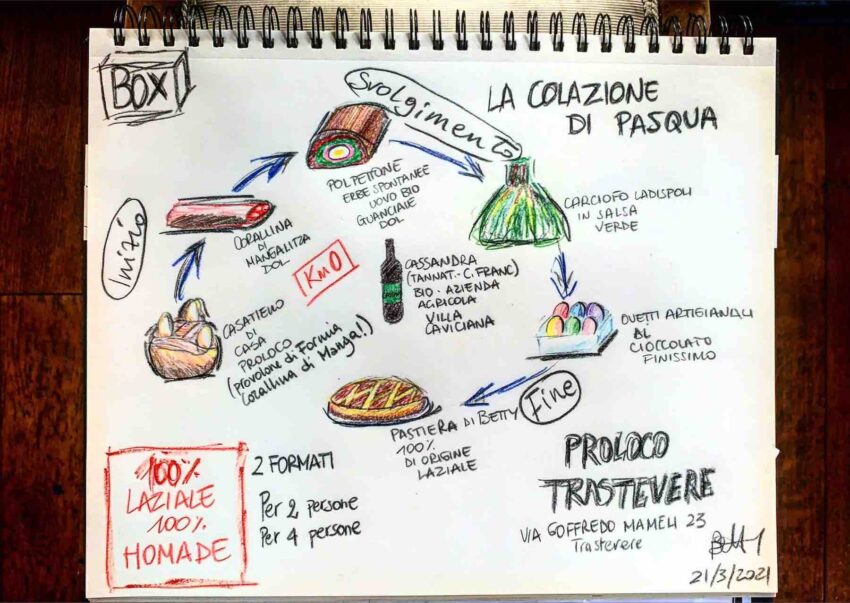 BOX
Svolgimento
LA COLAZIONE
DI PASQUA
Inizio
POLPETTONE
ERBE SPONTANEE
UOVO BIO
GUANCIALE
DOL
CARCIOFO LADISPOLI
IN SALSA
VERDE
CORALLINA
DI
MANGALITZA
DOL
Km0
CASSANDRA
(TANNAT.-C. FRANC)
BIO - AZIENDA
AGRICOLA
VILLA
CAVICIANA
CASATIELLO
DI
CASA
PROLOCO
(provolone di Formia
Corallina di Manga!)
OVETTI ARTIGIANALI
AL
CIOCCOLATO
FINISSIMO
Fine
PASTIERA DI BETTY
100%
DI ORIGINE
LAZIALE
100%
LAZIALE
100%
HOMADE
2 FORMATI
Per 2 persone
Per 4 persone
PROLOCO
TRASTEVERE
VIA GOFFREDO MAMELI 23
Trastevere
21/3/2021